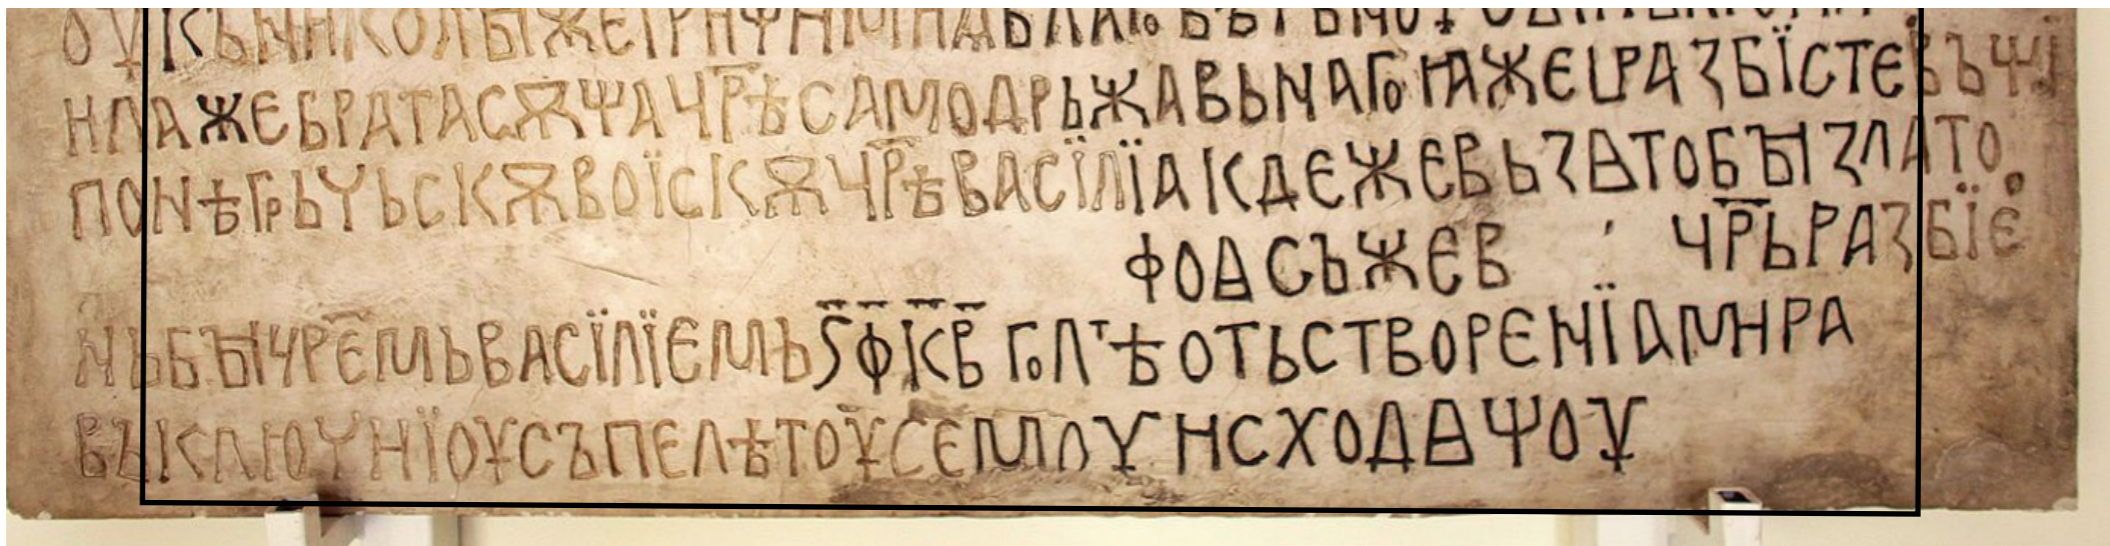 ОУКЪННКОЛЫЖЕІРНѰНМН
НЛАЖЕБРАТАСѪѰАЧР҃ѢСАМОДРЬЖАВЬНАГОꙖЖЕІРАЗБЇСТЕВЪѰЇ
ПОНѢГРЬЧЬСКѪВОЇСКѪЧР҃ѢВАСЇЛЇАКДЕЖЕВЬЗѦТОБЫЗЛАТО
ФОѦСЪЖЕВ ЧР҃ЬРАЗБЇЕ
НЬБЫЧРЕ҃МЬВАСЇЛЇЕМЬЅ҃Ф҃К҃В҃ ГОЛⷮѢОТЬСТВОРЕНЇАМНРА
ВЪКЛЮЧНЇОУСЪПЕЛѢТОУСЕМОУНСХОДѦѰОУ